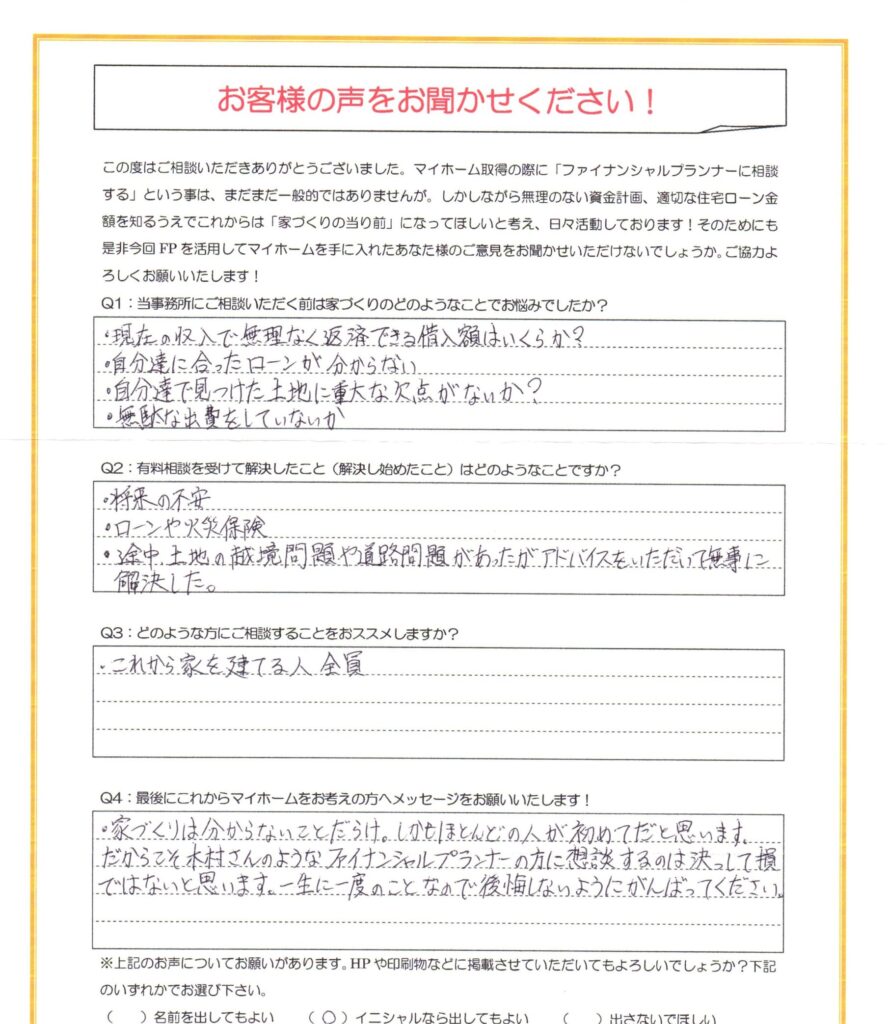 お客様の声をお聞かせください！
この度はご相談いただきありがとうございました。マイホーム取得の際に「ファイナンシャルプランナーに相談
する」という事は、まだまだ一般的ではありませんが。しかしながら無理のない資金計画、適切な住宅ローン金
額を知るうえでこれからは「家づくりの当り前」になってほしいと考え、日々活動しております！そのためにも
是非今回 FP を活用してマイホームを手に入れたあなた様のご意見をお聞かせいただけないでしょうか。ご協力よ
ろしくお願いいたします！
Q1：当事務所にご相談いただく前は家づくりのどのようなことでお悩みでしたか？
・現在の収入で無理なく返済できる借入額はいくらか？
・自分達に合ったローンが分からない
・自分達で見つけた土地に重大な欠点がないか？
・無駄な出費をしていないか
Q2：有料相談を受けて解決したこと（解決し始めたこと）はどのようなことですか？
・将来の不安
・ローンや火災保険
・途中、土地の越境問題や道路問題があったがアドバイスをいただいて無事に
解決した。
Q3：どのような方にご相談することをおススメしますか？
・これから家を建てる人 全員
Q4：最後にこれからマイホームをお考えの方へメッセージをお願いいたします！
・家づくりは分からないことだらけ。しかもほとんどの人が初めてだと思います。
だからこそ木村さんのようなファイナンシャルプランナーの方に想談するのは決っして損
ではないと思います。一生に一度のことなので後悔しないようにがんばってください。
※上記のお声についてお願いがあります。HP や印刷物などに掲載させていただいてもよろしいでしょうか？下記
のいずれかでお選び下さい。
（　）名前を出してもよい　（○）イニシャルなら出してもよい　（　）出さないでほしい